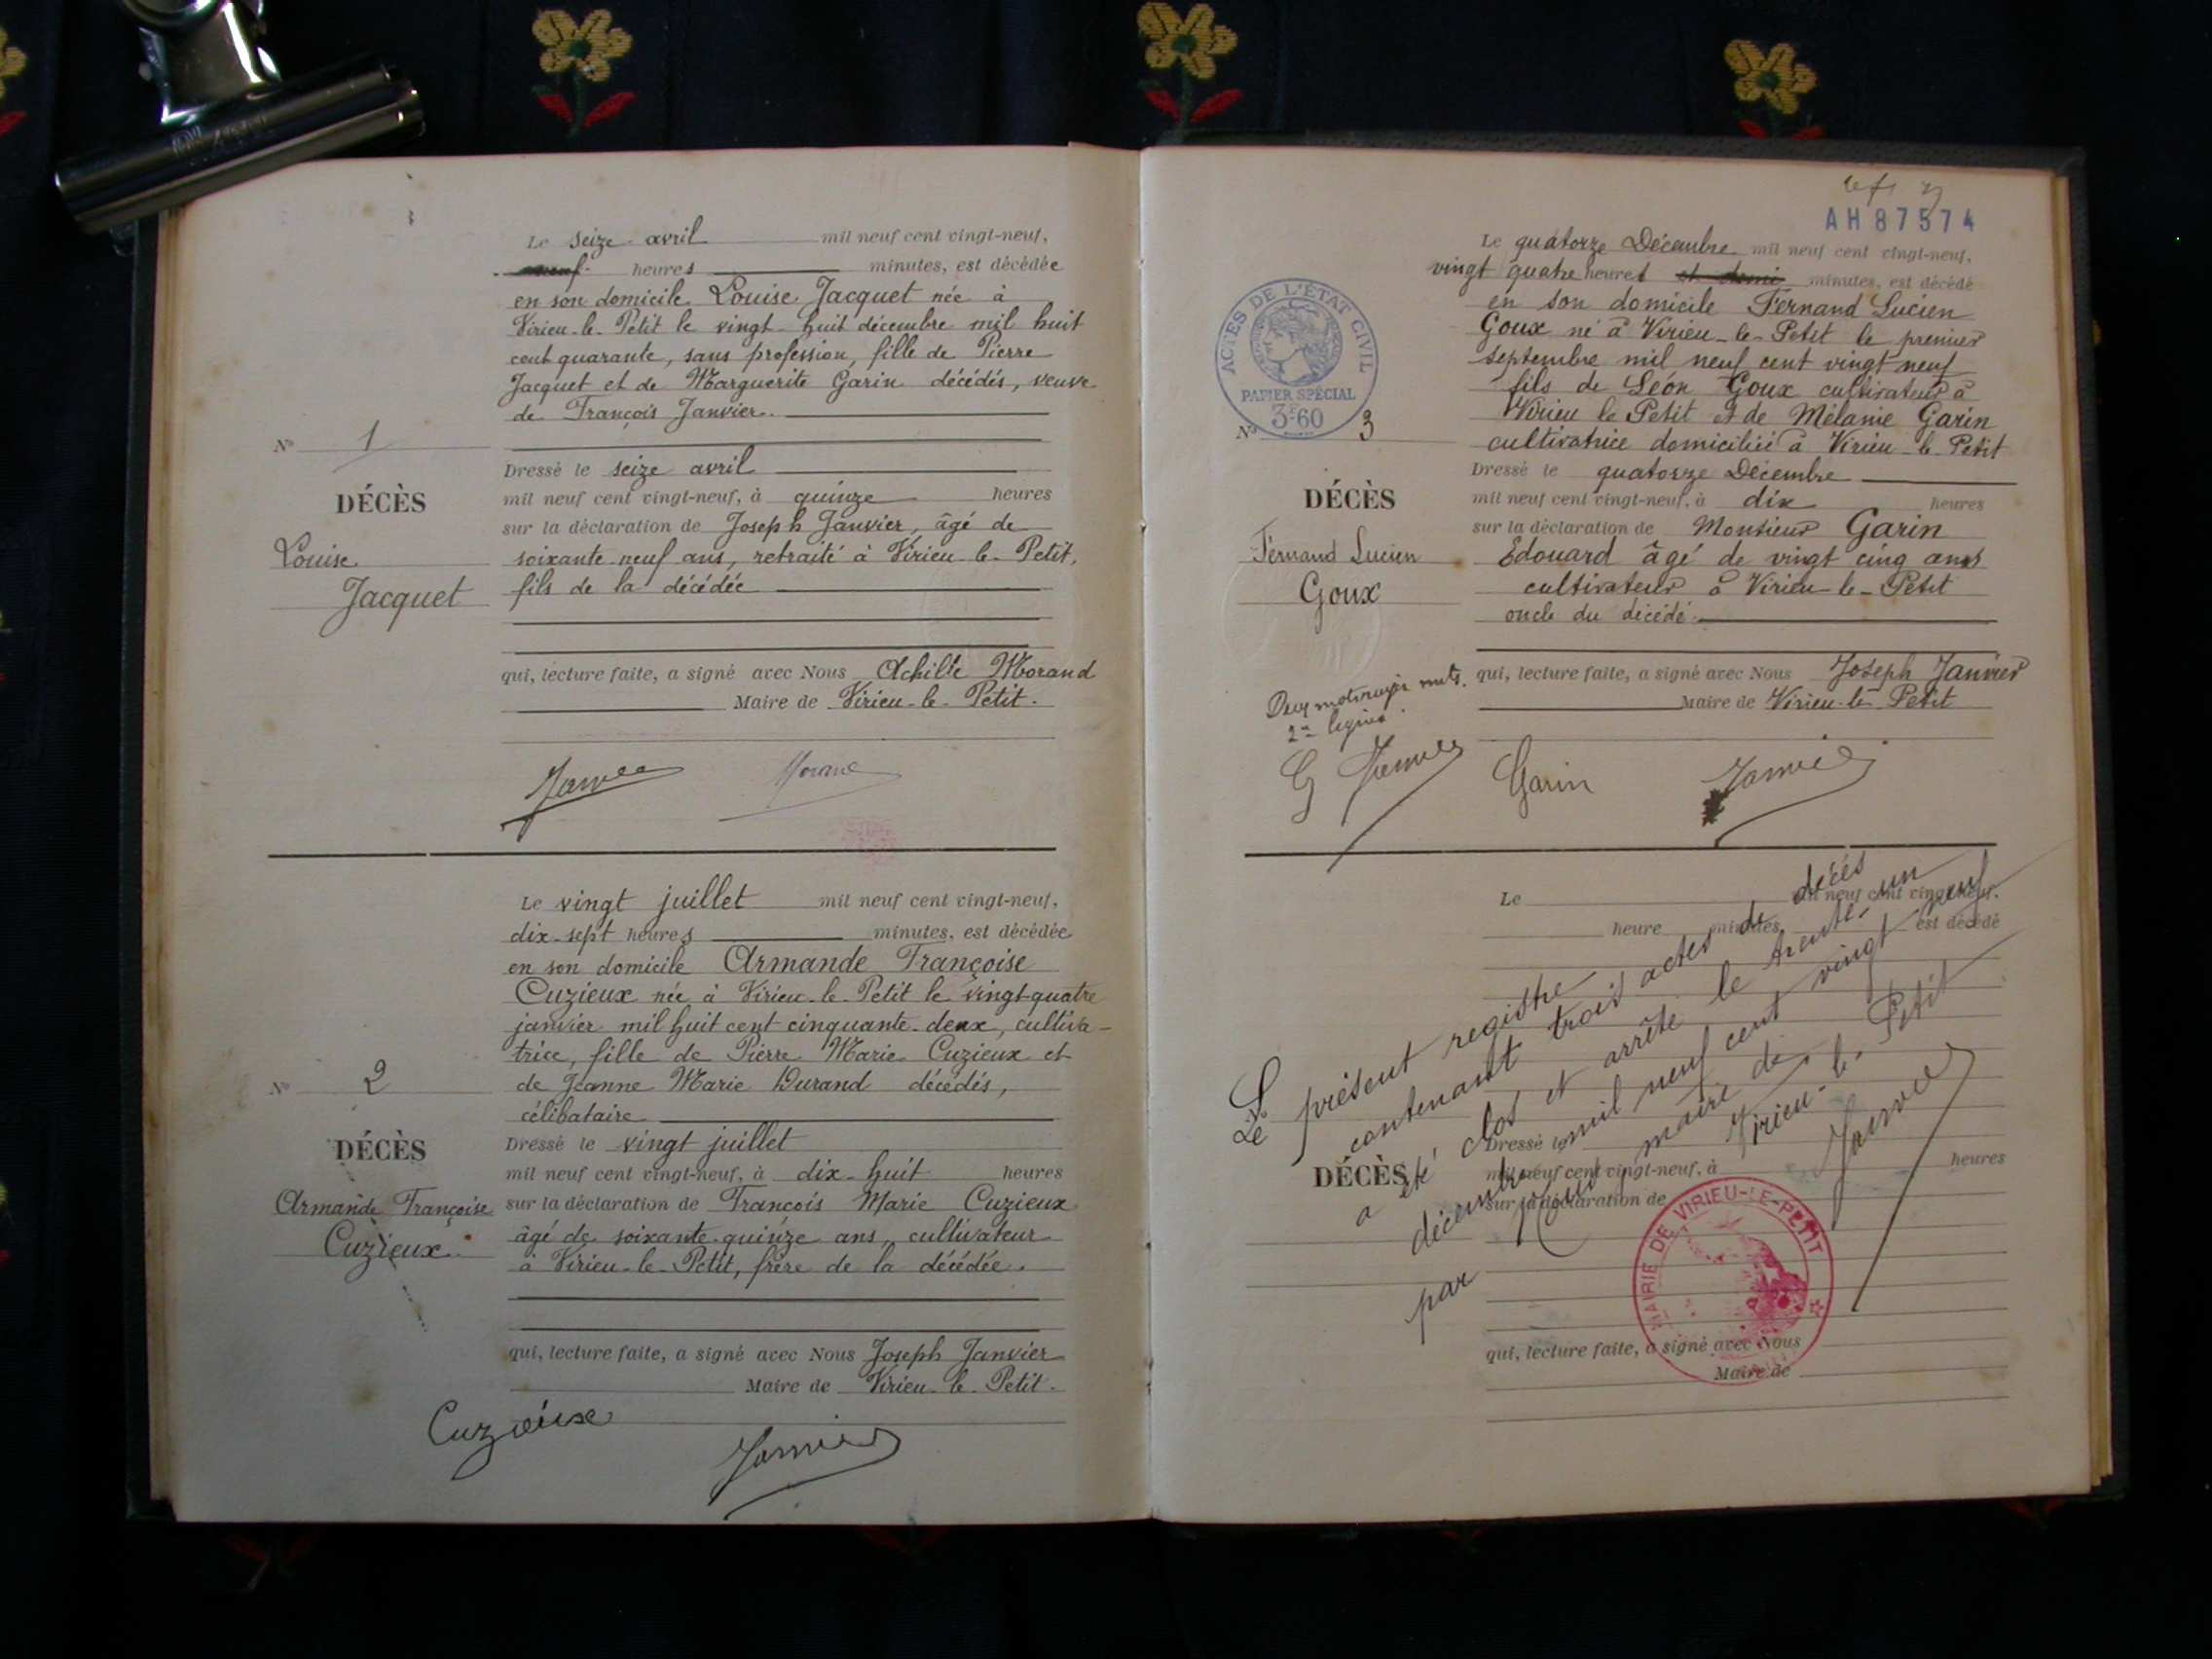 Le seize avril mil neuf cent vingt-neuf,
neuf heures minutes, est décédée
en son domicile Louise Jacquet née à
Virieu-le-Petit le vingt-huit décembre mil huit
cent quarante, sans profession, fille de Pierre
Jacquet et de Marguerite Garin décédés, veuve
de François Janvier.
N° 1
Dressé le seize avril
mil neuf cent vingt-neuf, à quinze heures
DÉCÈS
sur la déclaration de Joseph Janvier, âgé de
Louise
soixante-neuf ans, retraité à Virieu-le-Petit,
Jacquet
fils de la décédée
qui, lecture faite, a signé avec Nous Achille Morand
Maire de Virieu-le-Petit.
Janvier Morand
Le vingt juillet mil neuf cent vingt-neuf,
dix-sept heures minutes, est décédée
en son domicile Armande Françoise
Cuzieux née à Virieu-le-Petit le vingt-quatre
janvier mil huit cent cinquante-deux, cultiva-
trice, fille de Pierre Marie Cuzieux et
N° 2
de Jeanne Marie Durand décédés,
célibataire
DÉCÈS
Dressé le vingt juillet
mil neuf cent vingt-neuf, à dix-huit heures
Armande Françoise
sur la déclaration de François Marie Cuzieux
Cuzieux
âgé de soixante-quinze ans, cultivateur
à Virieu-le-Petit, frère de la décédée.
qui, lecture faite, a signé avec Nous Joseph Janvier
Maire de Virieu-le-Petit.
Cuzieux
Janvier
AH 87574
ACTES DE L'ÉTAT CIVIL
PAPIER SPÉCIAL
3F60
Le quatorze Décembre mil neuf cent vingt-neuf,
vingt quatre heures et demie minutes, est décédé
en son domicile Fernand Lucien
Goux né à Virieu-le-Petit le premier
septembre mil neuf cent vingt neuf
fils de Léon Goux cultivateur à
Virieu le Petit et de Mélanie Garin
N° 3
cultivatrice domiciliée à Virieu-le-Petit
Dressé le quatorze Décembre
DÉCÈS
mil neuf cent vingt-neuf, à dix heures
sur la déclaration de Monsieur Garin
Fernand Lucien
Edouard âgé de vingt cinq ans
Goux
cultivateur à Virieu-le-Petit
oncle du décédé.
qui, lecture faite, a signé avec Nous Joseph Janvier
Maire de Virieu-le-Petit
G Janvier
Garin
Janvier
Le mil neuf cent vingt-neuf,
heure minutes est décédé
N°
DÉCÈS
Dressé le
mil neuf cent vingt-neuf, à heures
sur la déclaration de
Le présent registre
contenant trois actes de décès
a été clos et arrêté le trente-un
décembre mil neuf cent vingt neuf
par Nous, maire de
Virieu-le-Petit
Janvier
MAIRIE DE VIRIEU-LE-PETIT
qui, lecture faite, a signé avec Nous
Maire de